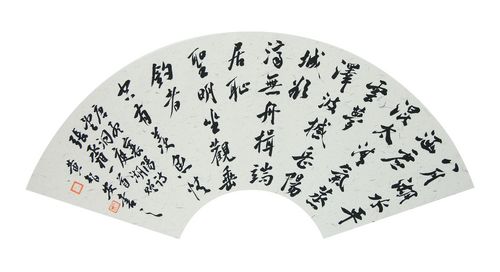 八月湖水平
涵虛
混太清氣蒸
雲夢
澤波撼岳陽
城欲
濟無舟楫端
居恥
聖明坐觀垂
釣者
空有羨魚情